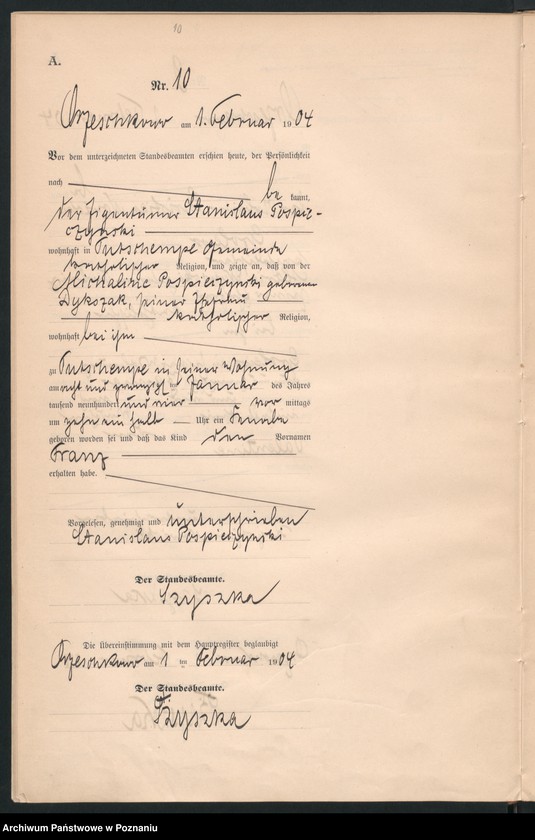 10
A.
Nr. 10
Orzeschkowo am 1. Februar 1904
Vor dem unterzeichneten Standesbeamten erschien heute, der Persönlichkeit
nach be kannt,
der Eigentümer Stanislaus Pospie-
czynski
wohnhaft in Tutschempe Gemeinde
katholischer Religion, und zeigte an, daß von der
Michaline Pospieczynski geborenen
Dykszak, seiner Ehefrau
katholischer Religion,
wohnhaft bei ihm
zu Tutschempe in seiner Wohnung
am acht und zwanzigsten Januar des Jahres
tausend neunhundert und vier vor mittags
um zehn ein halb Uhr ein Knabe
geboren worden sei und daß das Kind den Vornamen
Franz
erhalten habe.
Vorgelesen, genehmigt und unterschrieben
Stanislaus Pospieczynski
Der Standesbeamte.
Szyszka
Die Übereinstimmung mit dem Hauptregister beglaubigt
Orzeschkowo am 1 ten Februar 1904
Der Standesbeamte.
Szyszka
Archiwum Państwowe w Poznaniu